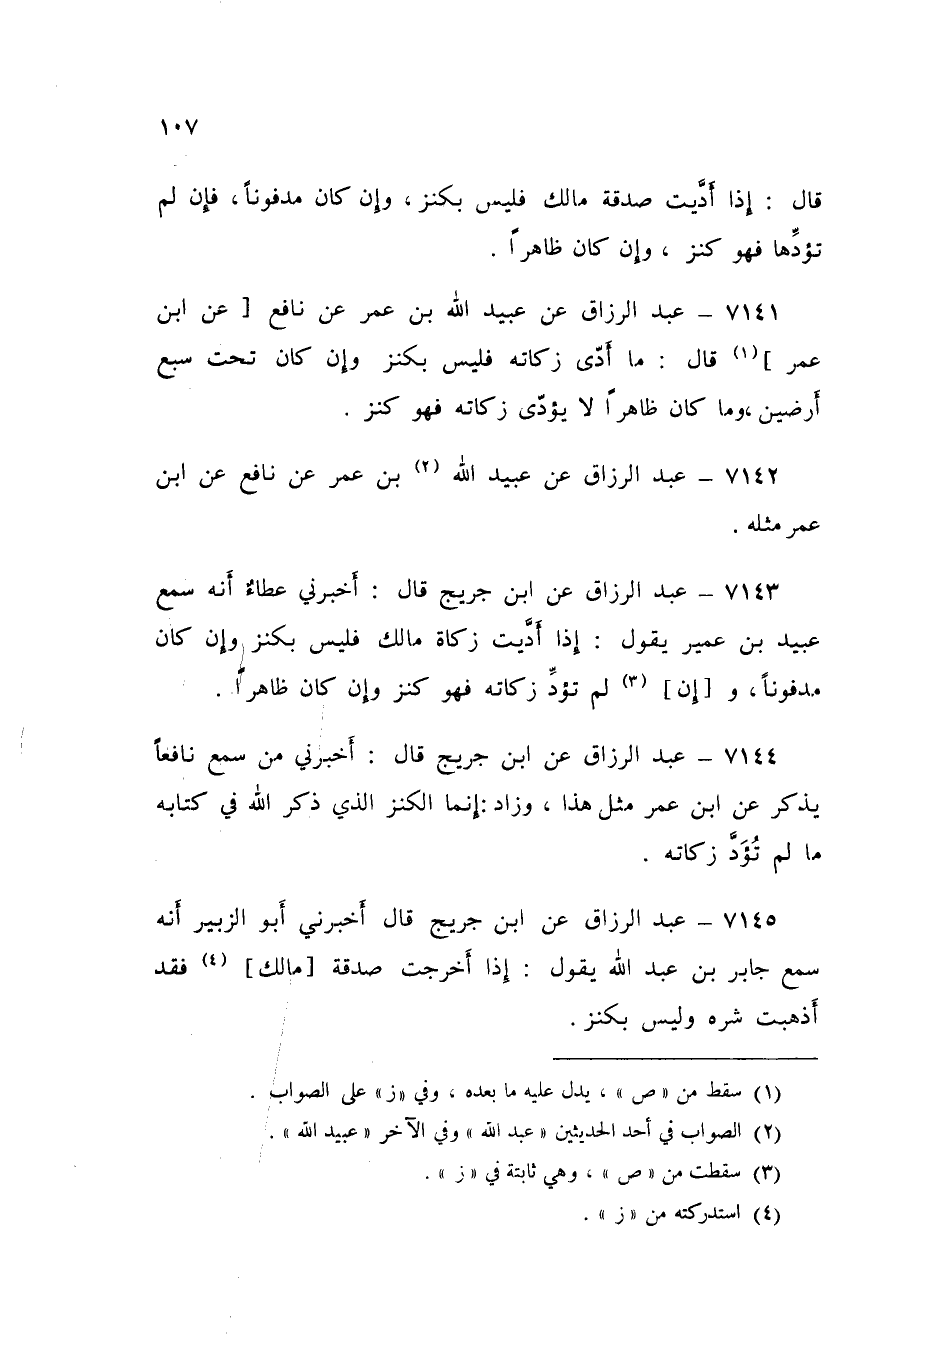 ١٠٧
قال : إذا أدَّيت صدقة مالك فليس بكنز ، وإن كان مدفوناً ، فإن لم
تؤدِّها فهو كنز ، وإن كان ظاهراً .
٧١٤١ – عبد الرزاق عن عبيد الله بن عمر عن نافع [ عن ابن
عمر ] (١) قال : ما أدّى زكاته فليس بكنز وإن كان تحت سبع
أرضين ،وما كان ظاهراً لا يؤدّى زكاته فهو كنز .
٧١٤٢ – عبد الرزاق عن عبيد الله (٢) بن عمر عن نافع عن ابن
عمر مثله .
٧١٤٣ – عبد الرزاق عن ابن جريج قال : أخبرني عطاءٌ أنه سمع
عبيد بن عمير يقول : إذا أدَّيت زكاة مالك فليس بكنز وإن كان
مدفوناً ، و [إن] (٣) لم تؤدِّ زكاته فهو كنز وإن كان ظاهراً .
٧١٤٤ – عبد الرزاق عن ابن جريج قال : أخبرني من سمع نافعاً
يذكر عن ابن عمر مثل هذا ، وزاد :إنما الكنز الذي ذكر الله في كتابه
ما لم تُؤَدَّ زكاته .
٧١٤٥ – عبد الرزاق عن ابن جريج قال أخبرني أبو الزبير أنه
سمع جابر بن عبد الله يقول : إذا أخرجت صدقة [مالك] (٤) فقد
أذهبت شره وليس بكنز .
(١) سقط من « ص » ، يدل عليه ما بعده ، وفي «ز» على الصواب .
(٢) الصواب في أحد الحديثين « عبد الله » وفي الآخر « عبيد الله » .
(٣) سقطت من « ص » ، وهي ثابتة في « ز » .
(٤) استدركته من « ز » .